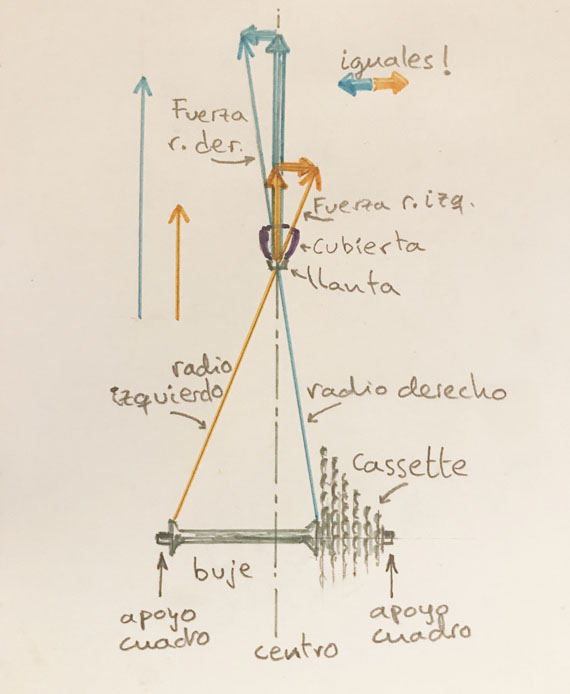 iguales!
Fuerza
r. der.
Fuerza r. izq.
Cubierta
llanta
radio
izquierdo
radio derecho
cassette
buje
apoyo
cuadro
centro
apoyo
cuadro